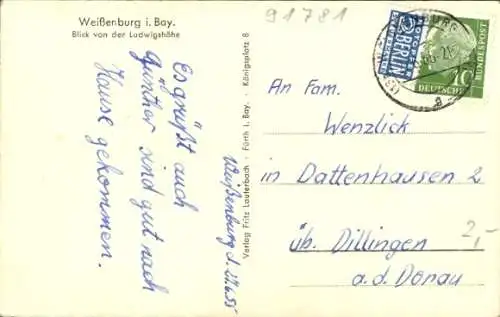 Weißenburg i. Bay.
Blick von der Ludwigshöhe
91781
Weißenburg d. 27.6.55
Es grüßt euch
Günther sind gut nach
Hause gekommen.
Verlag Fritz Lauterbach · Fürth i. Bay. · Königsplatz 8
NOTOPFER
2 BERLIN
STEUERMARKE
10
DEUTSCHE
BUNDESPOST
An Fam.
Wenzlick
in Dattenhausen 2
üb. Dillingen
a.d. Donau
2,-